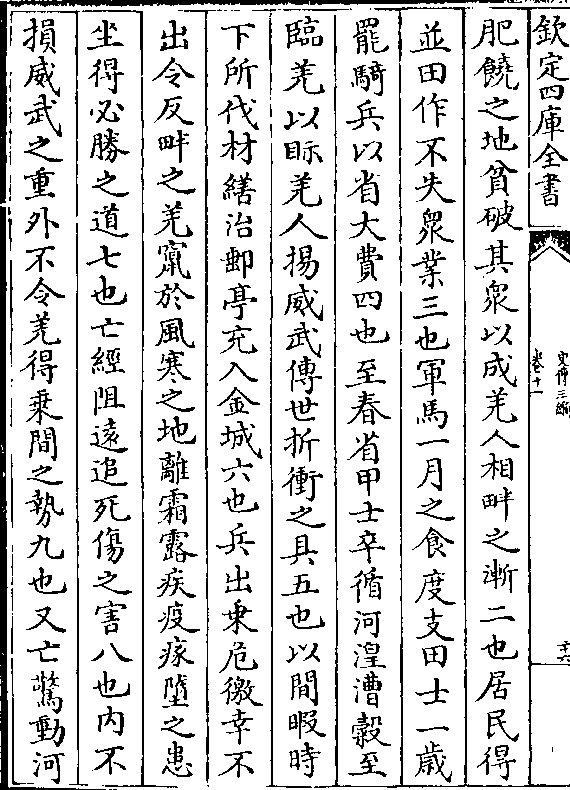 欽定四庫全書
史傳三編
卷十一
十六
肥饒之地貧破其衆以成羌人相畔之漸二也居民得
並田作不失衆業三也軍馬一月之食度支田士一歳
罷騎兵以省大費四也至春省甲士卒循河湟漕糓至
臨羌以眎羌人揚威武傳世折衝之具五也以間暇時
下所伐材繕治郵亭充入金城六也兵出乗危徼幸不
出令反畔之羌竄於風寒之地離霜露疾疫瘃墮之患
坐得必勝之道七也亡經阻逺追死傷之害八也内不
損威武之重外不令羌得乗間之勢九也又亡驚動河